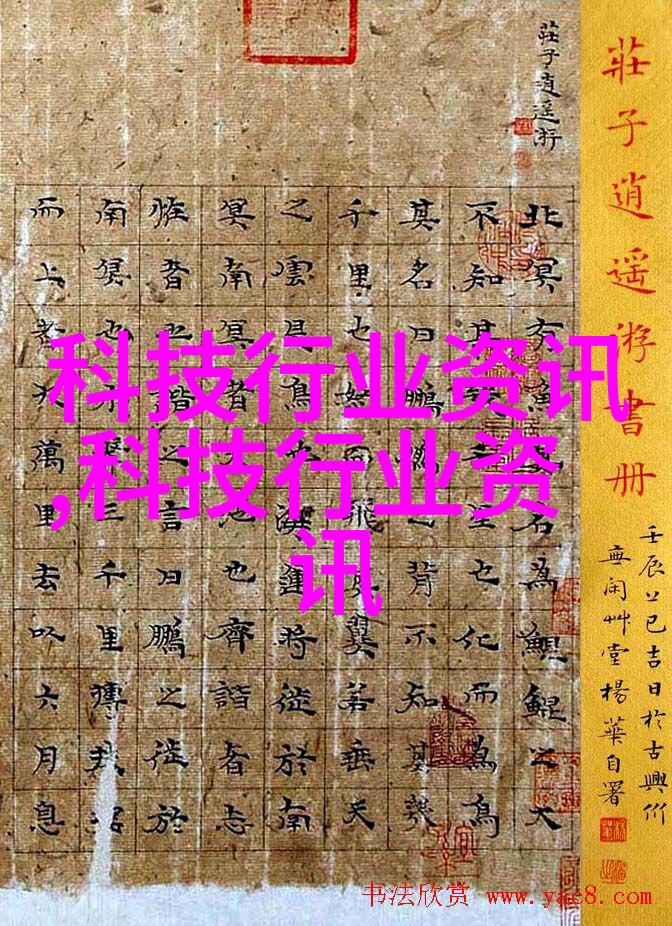 莊子逍遥游書册
壬辰上巳吉日於古興州
無闲艸堂楊華自署
莊子逍遥游
北冥有魚其名為鯤鯤之大
不知其幾千里也化而為鳥
其名曰鵬鵬之背不知其幾
千里也怒而飛其翼若垂天
之雲是鳥也海運將徙於南
冥南冥者天池也齊諧者志
怪者也諧之言曰鵬之徙於
南冥也水擊三千里摶扶搖
而上者九萬里去以六月息
科技行业资讯
,科技行业资
讯
书法欣赏 www.yac8.com